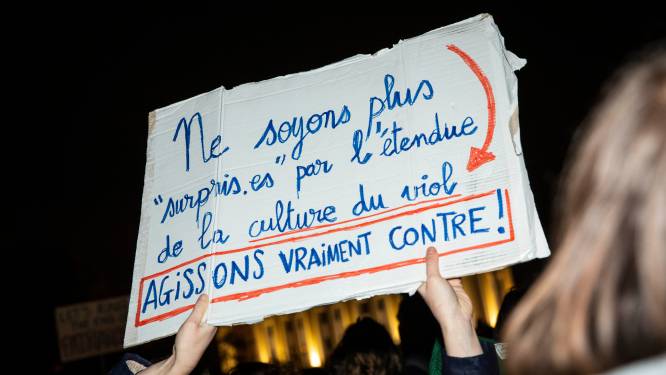 Ne soyons plus
"surpris.es" par l'étendue
de la culture du viol
AGISSONS VRAIMENT CONTRE !